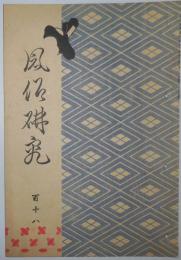 風俗研究
百十八